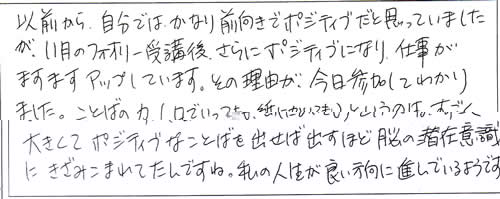 以前から、自分では、かなり前向きでポジティブだと思っていました
が、11月のフォトリー受講後、さらにポジティブになり、仕事が
ますますアップしています。その理由が、今日参加してわかり
ました。ことばの力、口でいっても、紙にかいても、というのは、すごく
大きくて ポジティブなことばを出せば出すほど 脳の潜在意識
にきざみこまれてたんですね。私の人生が良い方向に進んでいるようです